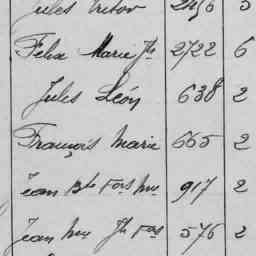 Jules Victor 2456 3
Felix Marie Jh 2722 6
Jules Léon 638 2
François Marie 665 2
Jean Bte Fois Mie 917 2
Jean Mie Jh Fois 576 2